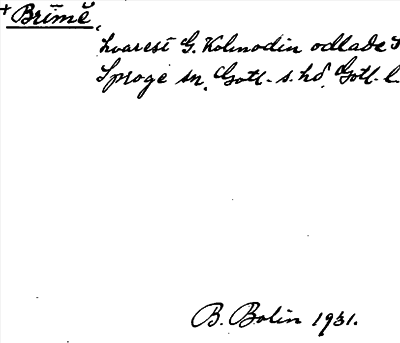 + Brimĕ,
hvarest G. Kolmodin odlade
Sproge sn, Gotl. s. hd, Gotl. l.
B. Bolin 1931.